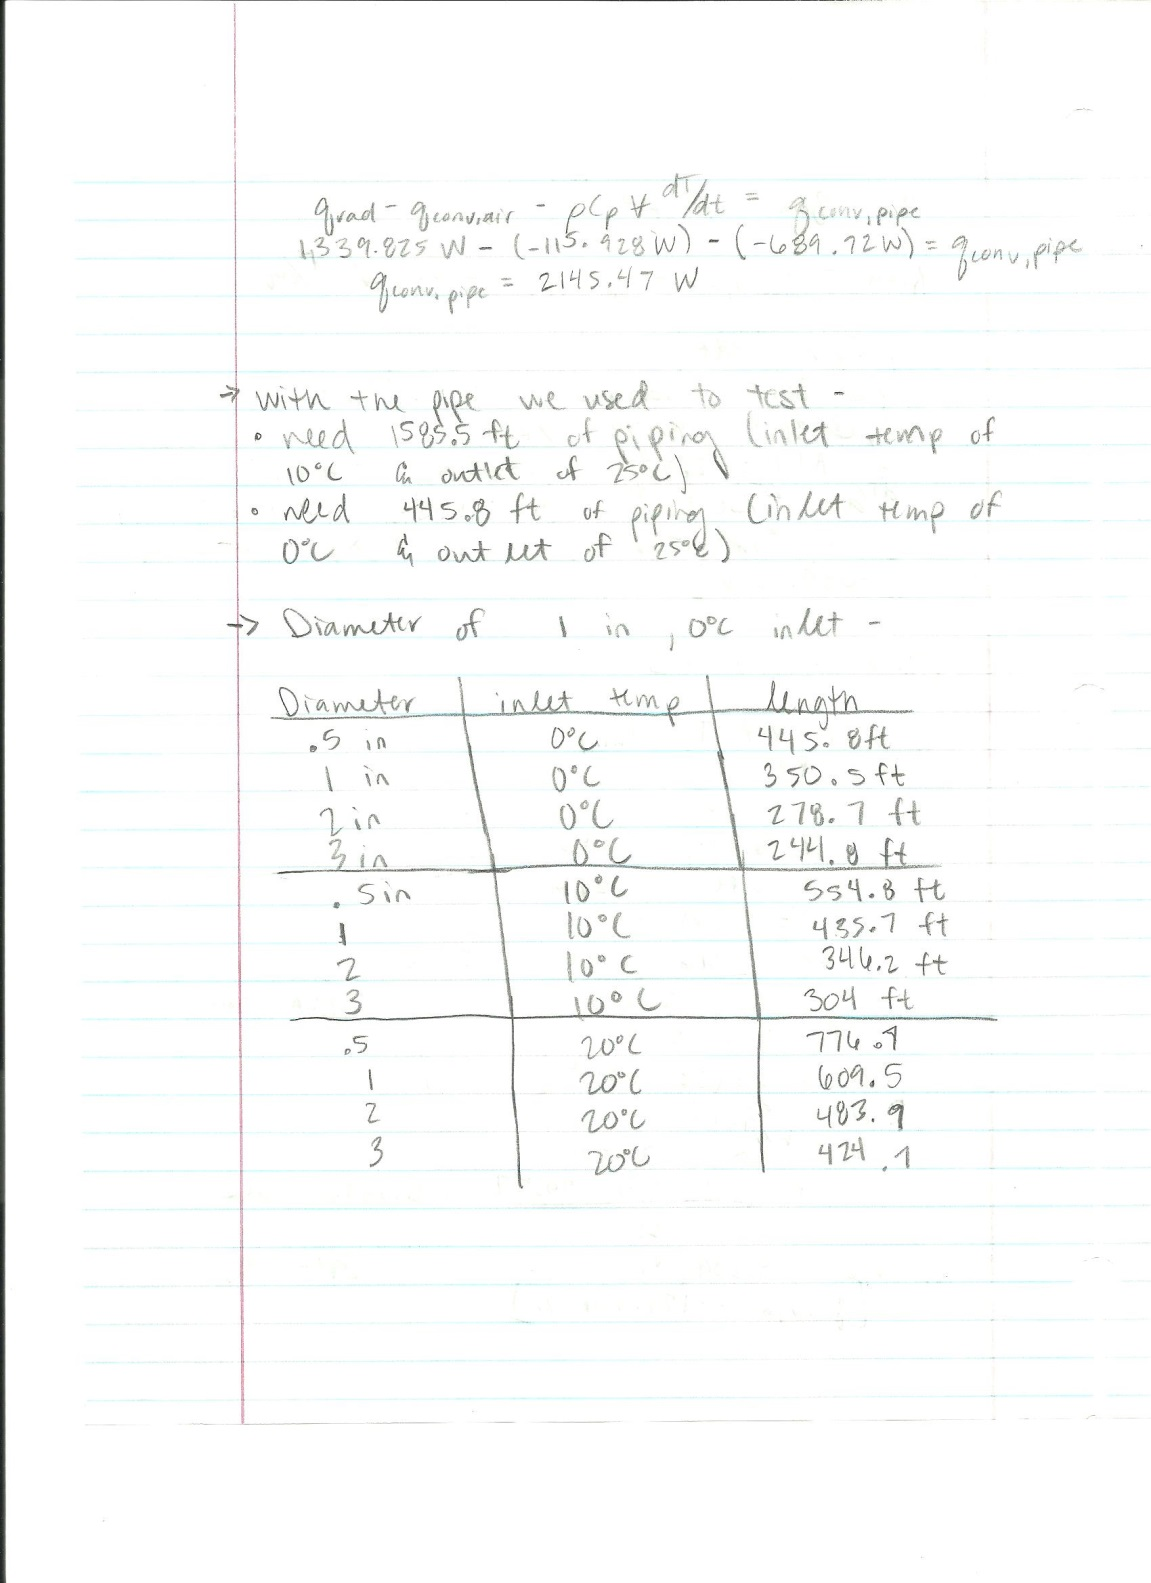 qrad - qconv,air - ρCp∀ dT/dt = qconv,pipe
1,339.825 W - (-115.928 W) - (-689.72 W) = qconv,pipe
qconv,pipe = 2145.47 W
→ With the pipe we used to test -
• need 1585.5 ft of piping (inlet temp of
10°C & outlet of 25°C)
• need 445.8 ft of piping (inlet temp of
0°C & outlet of 25°C)
→ Diameter of 1 in, 0°C inlet -
Diameter inlet temp length
.5 in 0°C 445.8ft
1 in 0°C 350.5ft
2 in 0°C 278.7 ft
3 in 0°C 244.8 ft
.5in 10°C 554.8 ft
1 10°C 435.7 ft
2 10°C 346.2 ft
3 10°C 304 ft
.5 20°C 776.1
1 20°C 609.5
2 20°C 483.9
3 20°C 424.1